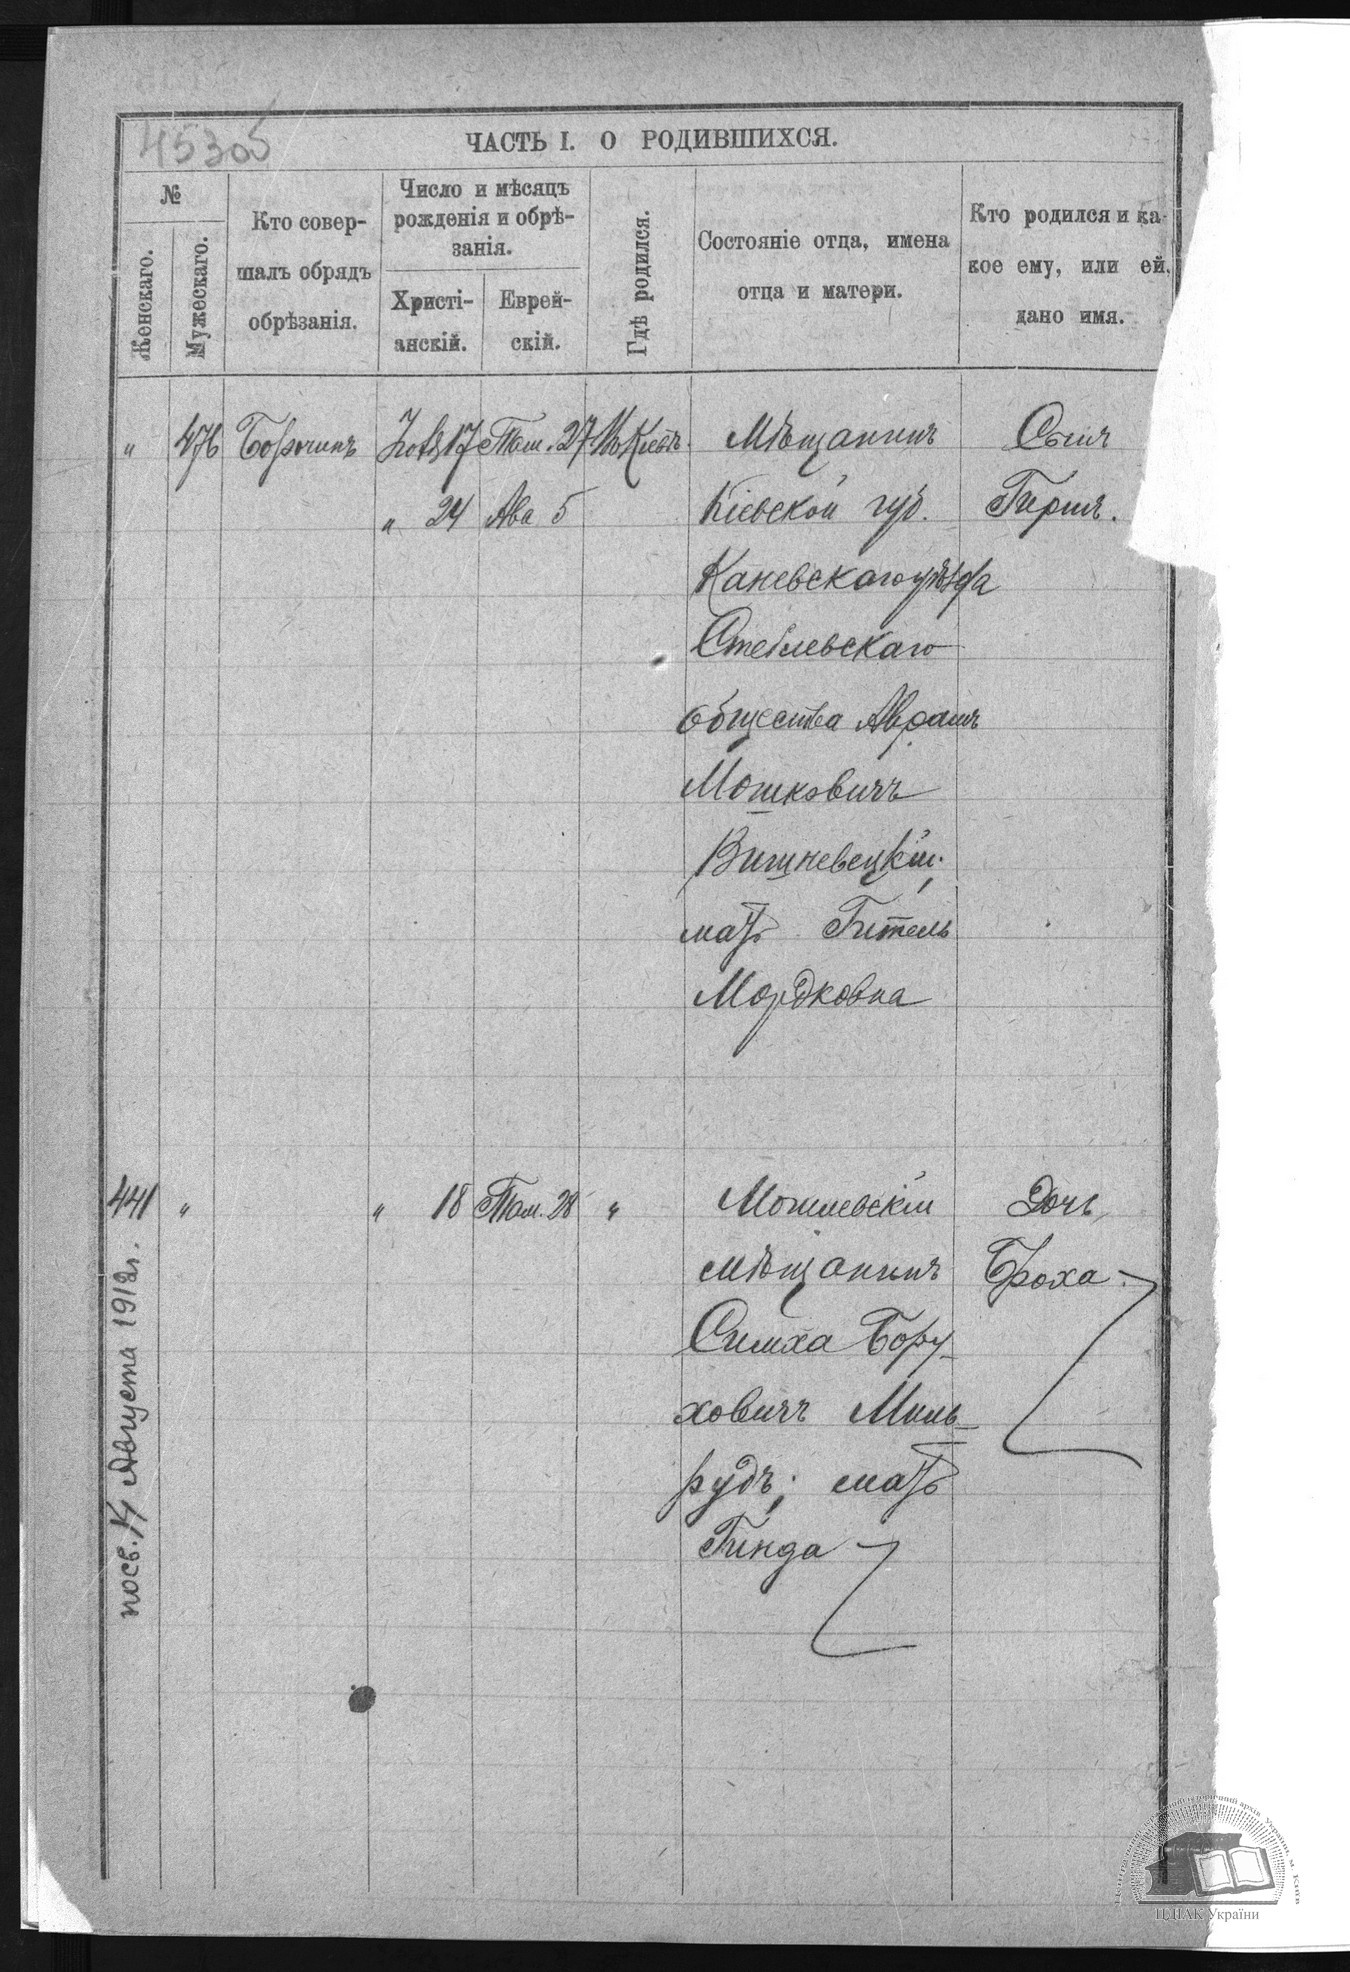 45305
ЧАСТЬ I. О РОДИВШИХСЯ.
№
Женскаго.
Мужескаго.
Кто совер-
шалъ обрядъ
обрѣзанія.
Число и мѣсяцъ
рожденія и обрѣ-
занія.
Христі-
анскій.
Еврей-
скій.
Гдѣ родился.
Состояніе отца, имена
отца и матери.
Кто родился и ка-
кое ему, или ей,
дано имя.
" 476 17 Там. 27 Въ Кіевѣ. Мѣщанинъ Сынъ
" 24 Ава 5 Кіевской губ. Гершъ.
Каневскаго уѣзда
Стеблевскаго
общества Аврамъ
Мошковичъ
Вишневецкій;
мать Гитель
Мордковна
441 " " 18 Там. 28 " Могилевскій Дочь
мѣщанинъ Броха
Симха Бору-
ховичъ Миль-
рудъ; мать
Гинда
Августа 1912 г.
ЦДІАК України